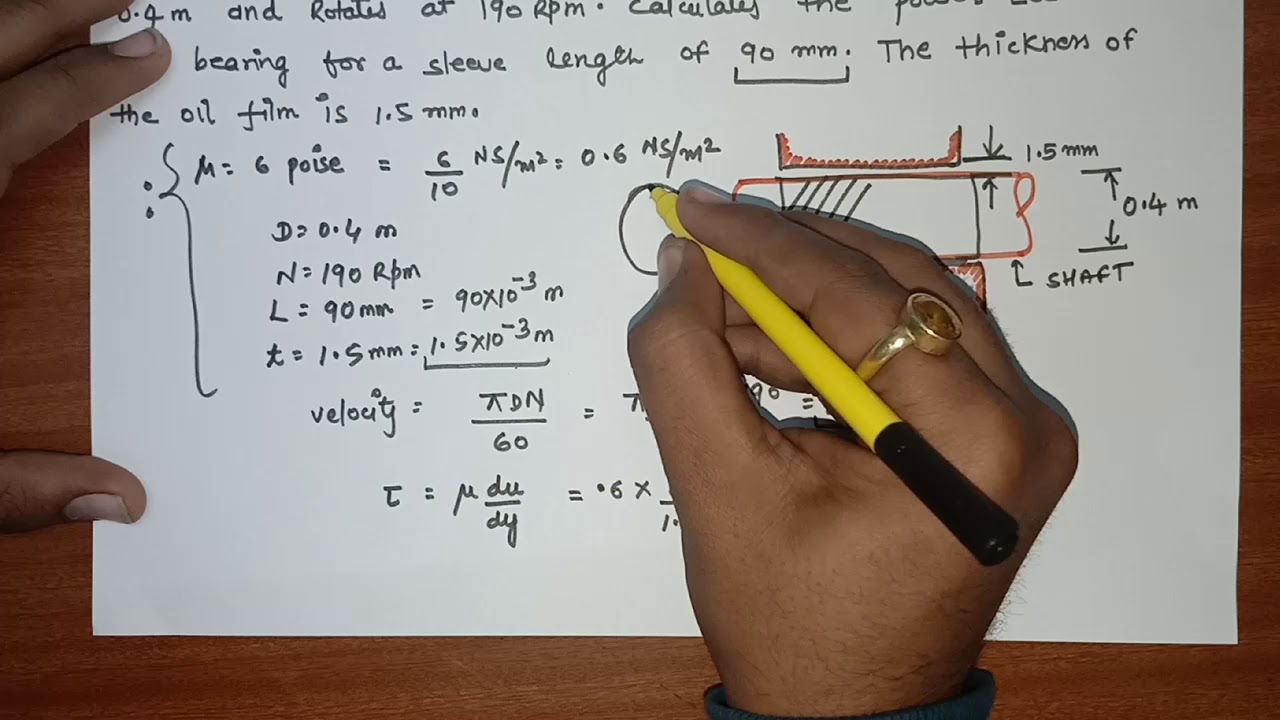 0.4 m and Rotates at 190 Rpm. Calculates the
bearing for a sleeve length of 90 mm. The thickness of
the oil film is 1.5 mm.
μ = 6 poise = 6/10 NS/m² = 0.6 NS/m²
1.5 mm
0.4 m
SHAFT
D = 0.4 m
N = 190 Rpm
L = 90 mm = 90×10⁻³ m
t = 1.5 mm = 1.5×10⁻³ m
velocity = πDN/60 = π
τ = μ du/dy = .6 ×